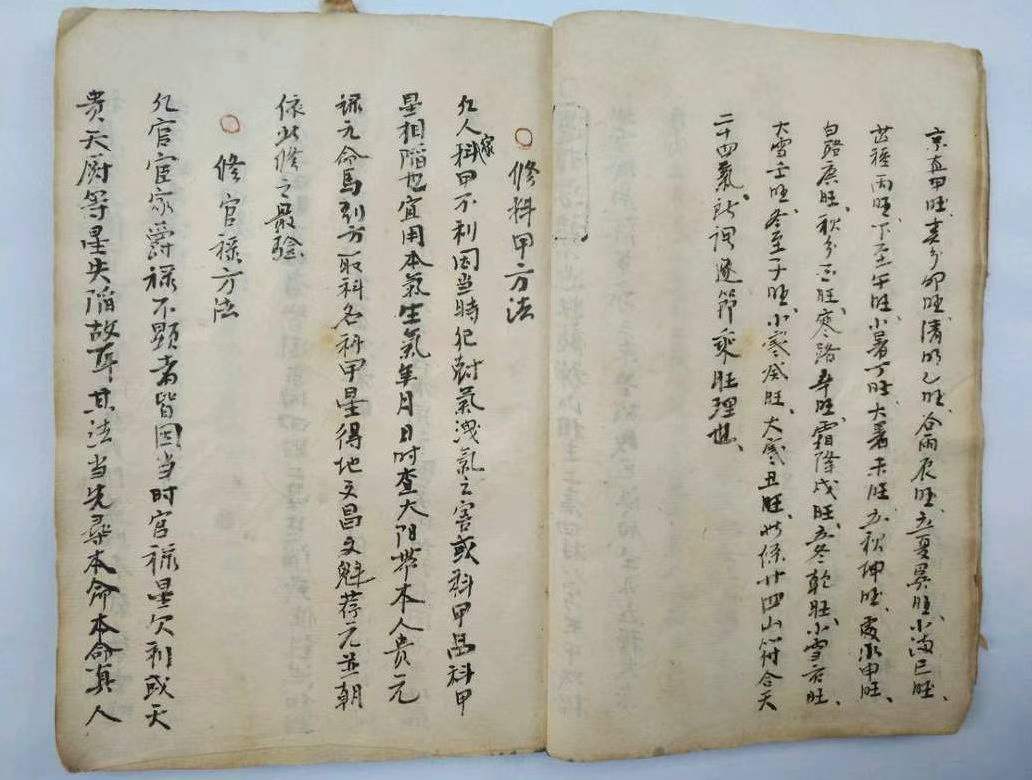 京直甲旺、春分卯旺、清明乙旺、谷雨辰旺、立夏巽旺、小满巳旺、
芒種丙旺、下至午旺、小暑丁旺、大暑未旺、立秋坤旺、處水申旺、
白路庚旺、秋分酉旺、寒路辛旺、霜降戍旺、立冬乾旺、小雪亥旺、
大雪壬旺、冬至子旺、小寒癸旺、大寒丑旺、此條廿四山符合天
二十四氣、於調逐節乘旺理也、
○修科甲方法
凡人家科甲不利因当時犯尅氣洩氣之害或科甲
星相陷也宜用本氣生氣年月日时查太阳带本人贵元
禄元命馬到方取科名科甲星得地文昌文魁荐元並朝
依此修之最验
○修官禄方法
凡官宦家爵禄不顯者皆因当时官禄星欠利或天
贵天厨等星失陷故耳其法当先尋本命本命真人